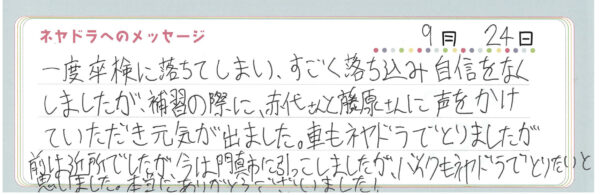 ネヤドラへのメッセージ 9月 24日
一度卒検に落ちてしまい、すごく落ち込み自信をなく
しましたが、補習の際に、赤代さんと藤原さんに声をかけ
ていただき元気が出ました。車もネヤドラでとりましたが
前は近所でしたが今は門真市に引っこしましたが、バイクもネヤドラでとりたいと
思いました。本当にありがとうございいました!